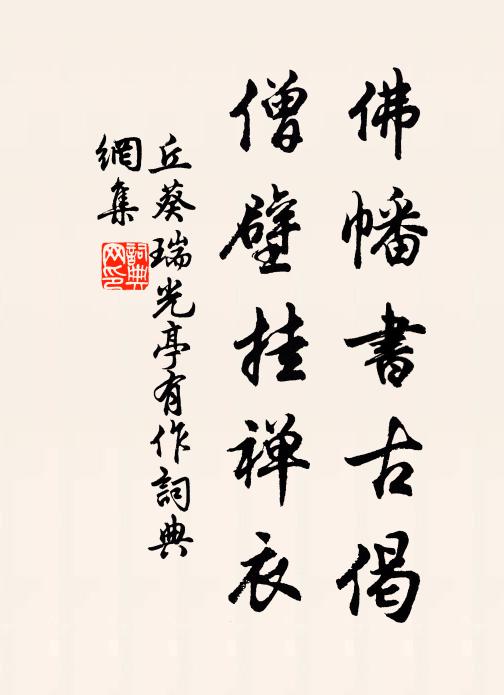 佛幡書古偈
僧壁挂禅衣
丘葵瑞光亭有作詞典
網集
詞典網印